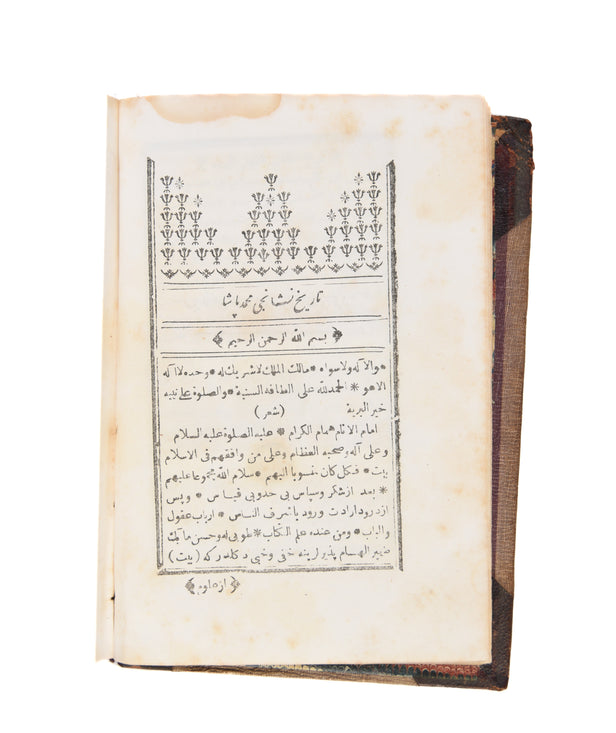 تاریخ نشانجی محمد پاشا
﴿ بسم الله الرحمن الرحیم ﴾
والا آله ولا سواه * مالك الملك لا شریك له * وحده لا اله
الا هو * الحمد لله علی الطافه السنیة * والصلوة علی نبیه
خیر البریة (شعر)
امام الانام همام الکرام * علیه الصلوة علیه السلام
وعلی آله وصحبه العظام وعلی من وافقهم فی الاسلام
بیت * فکل کان منسوبا الیهم * سلام الله مجموعا علیهم
* بعد از شکر وسپاس بی حد وبی قیاس * وپس
از درود ارادت ورود یا شرف الناس * ارباب عقول
والباب * ومن عنده علم الکتاب * طوبی له وحسن مآبك
ضمیر الهام پذیر لرینه خفی وخبی دکلدر که (بیت)
﴿ ﴾